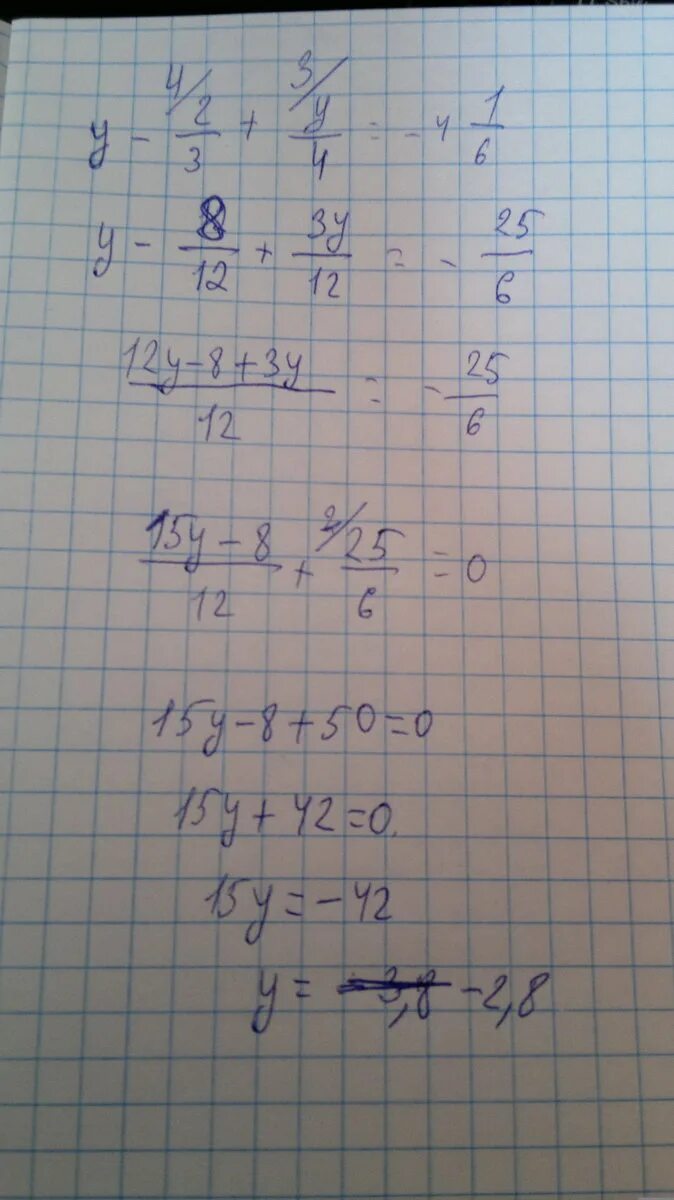 y - 4/ 2/3 + 3/ y/4 = -4 1/6
y - 8/12 + 3y/12 = - 25/6
12y-8+3y/12 = - 25/6
15y-8/12 + 2/ 25/6 = 0
15y-8+50=0
15y+42=0.
15y=-42
y= -2,8